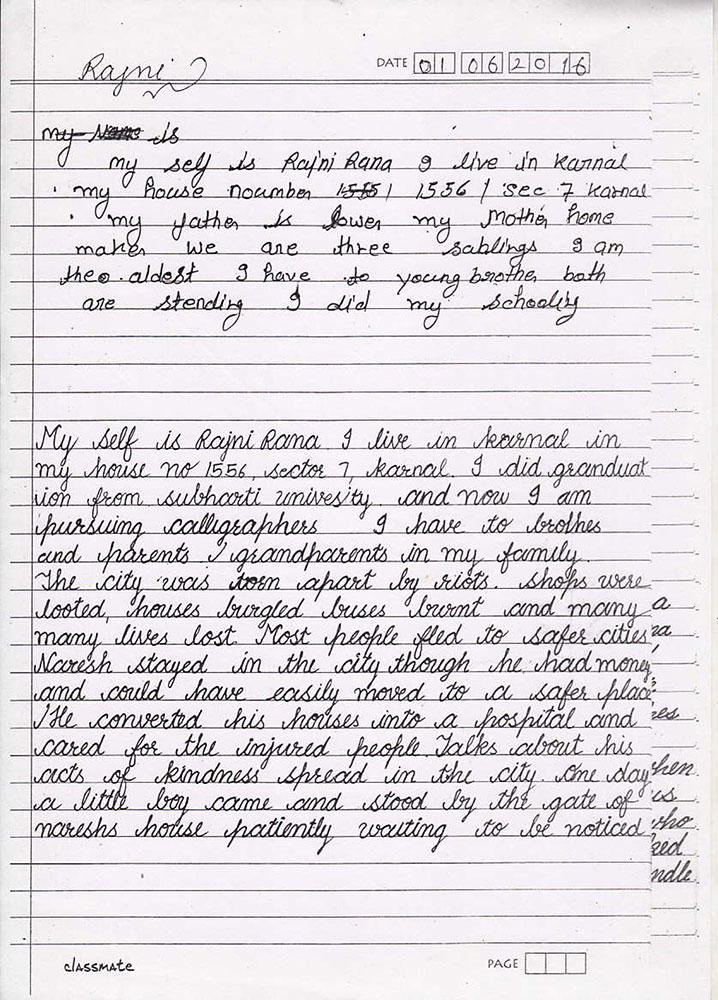 Rajni
DATE 01 06 2016
my Name is
my self is Rajni Rana I live in karnal
my house noumber 1555/ 1556 / Sec 7 karnal
my father is lower my Mother home
maker we are three sablings I am
theo aldest I have to young brother both
are stending I did my schooling
My self is Rajni Rana I live in karnal in
my house no 1556, sector 7, karnal. I did granduat
ion from subharti univesity. and now I am
pursuing calligraphers I have to brothes
and parents / grandparents in my family.
The city was torn apart by riots. shops were
looted, houses burgled buses burnt and many a
many lives lost. Most people fled to safer cities
Naresh stayed in the city though he had money
and could have easily moved to a safer place
He converted his houses into a hospital and res
cared for the injured people. Talks about his
acts of kindness spread in the city. one day hen
a little boy came and stood by the gate of us
nareshs house patiently waiting to be noticed who
ked
ndle
classmate
PAGE